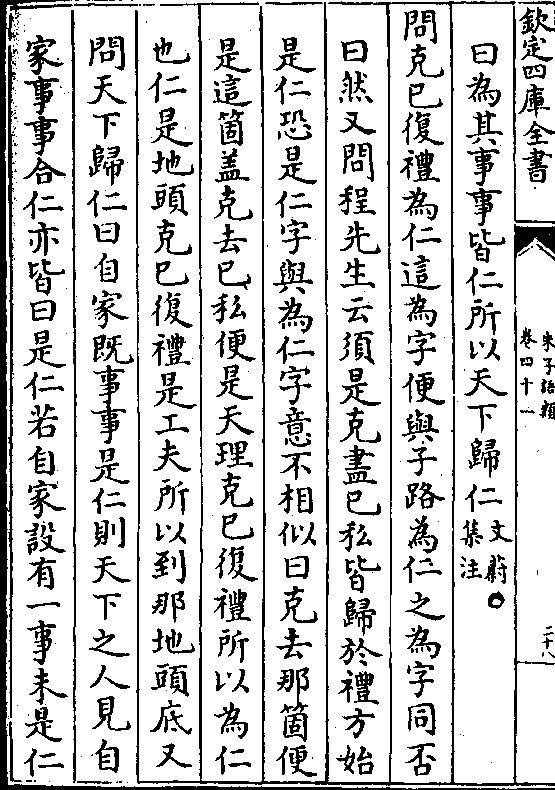 欽定四庫全書
朱子語類
卷四十一
二十八
曰為其事事皆仁所以天下歸仁文蔚〇集注
問克已復禮為仁這為字便與子路為仁之為字同否
曰然又問程先生云須是克盡已私皆歸於禮方始
是仁恐是仁字與為仁字意不相似曰克去那箇便
是這箇盖克去已私便是天理克已復禮所以為仁
也仁是地頭克已復禮是工夫所以到那地頭底又
問天下歸仁曰自家既事事是仁則天下之人見自
家事事合仁亦皆曰是仁若自家設有一事未是仁